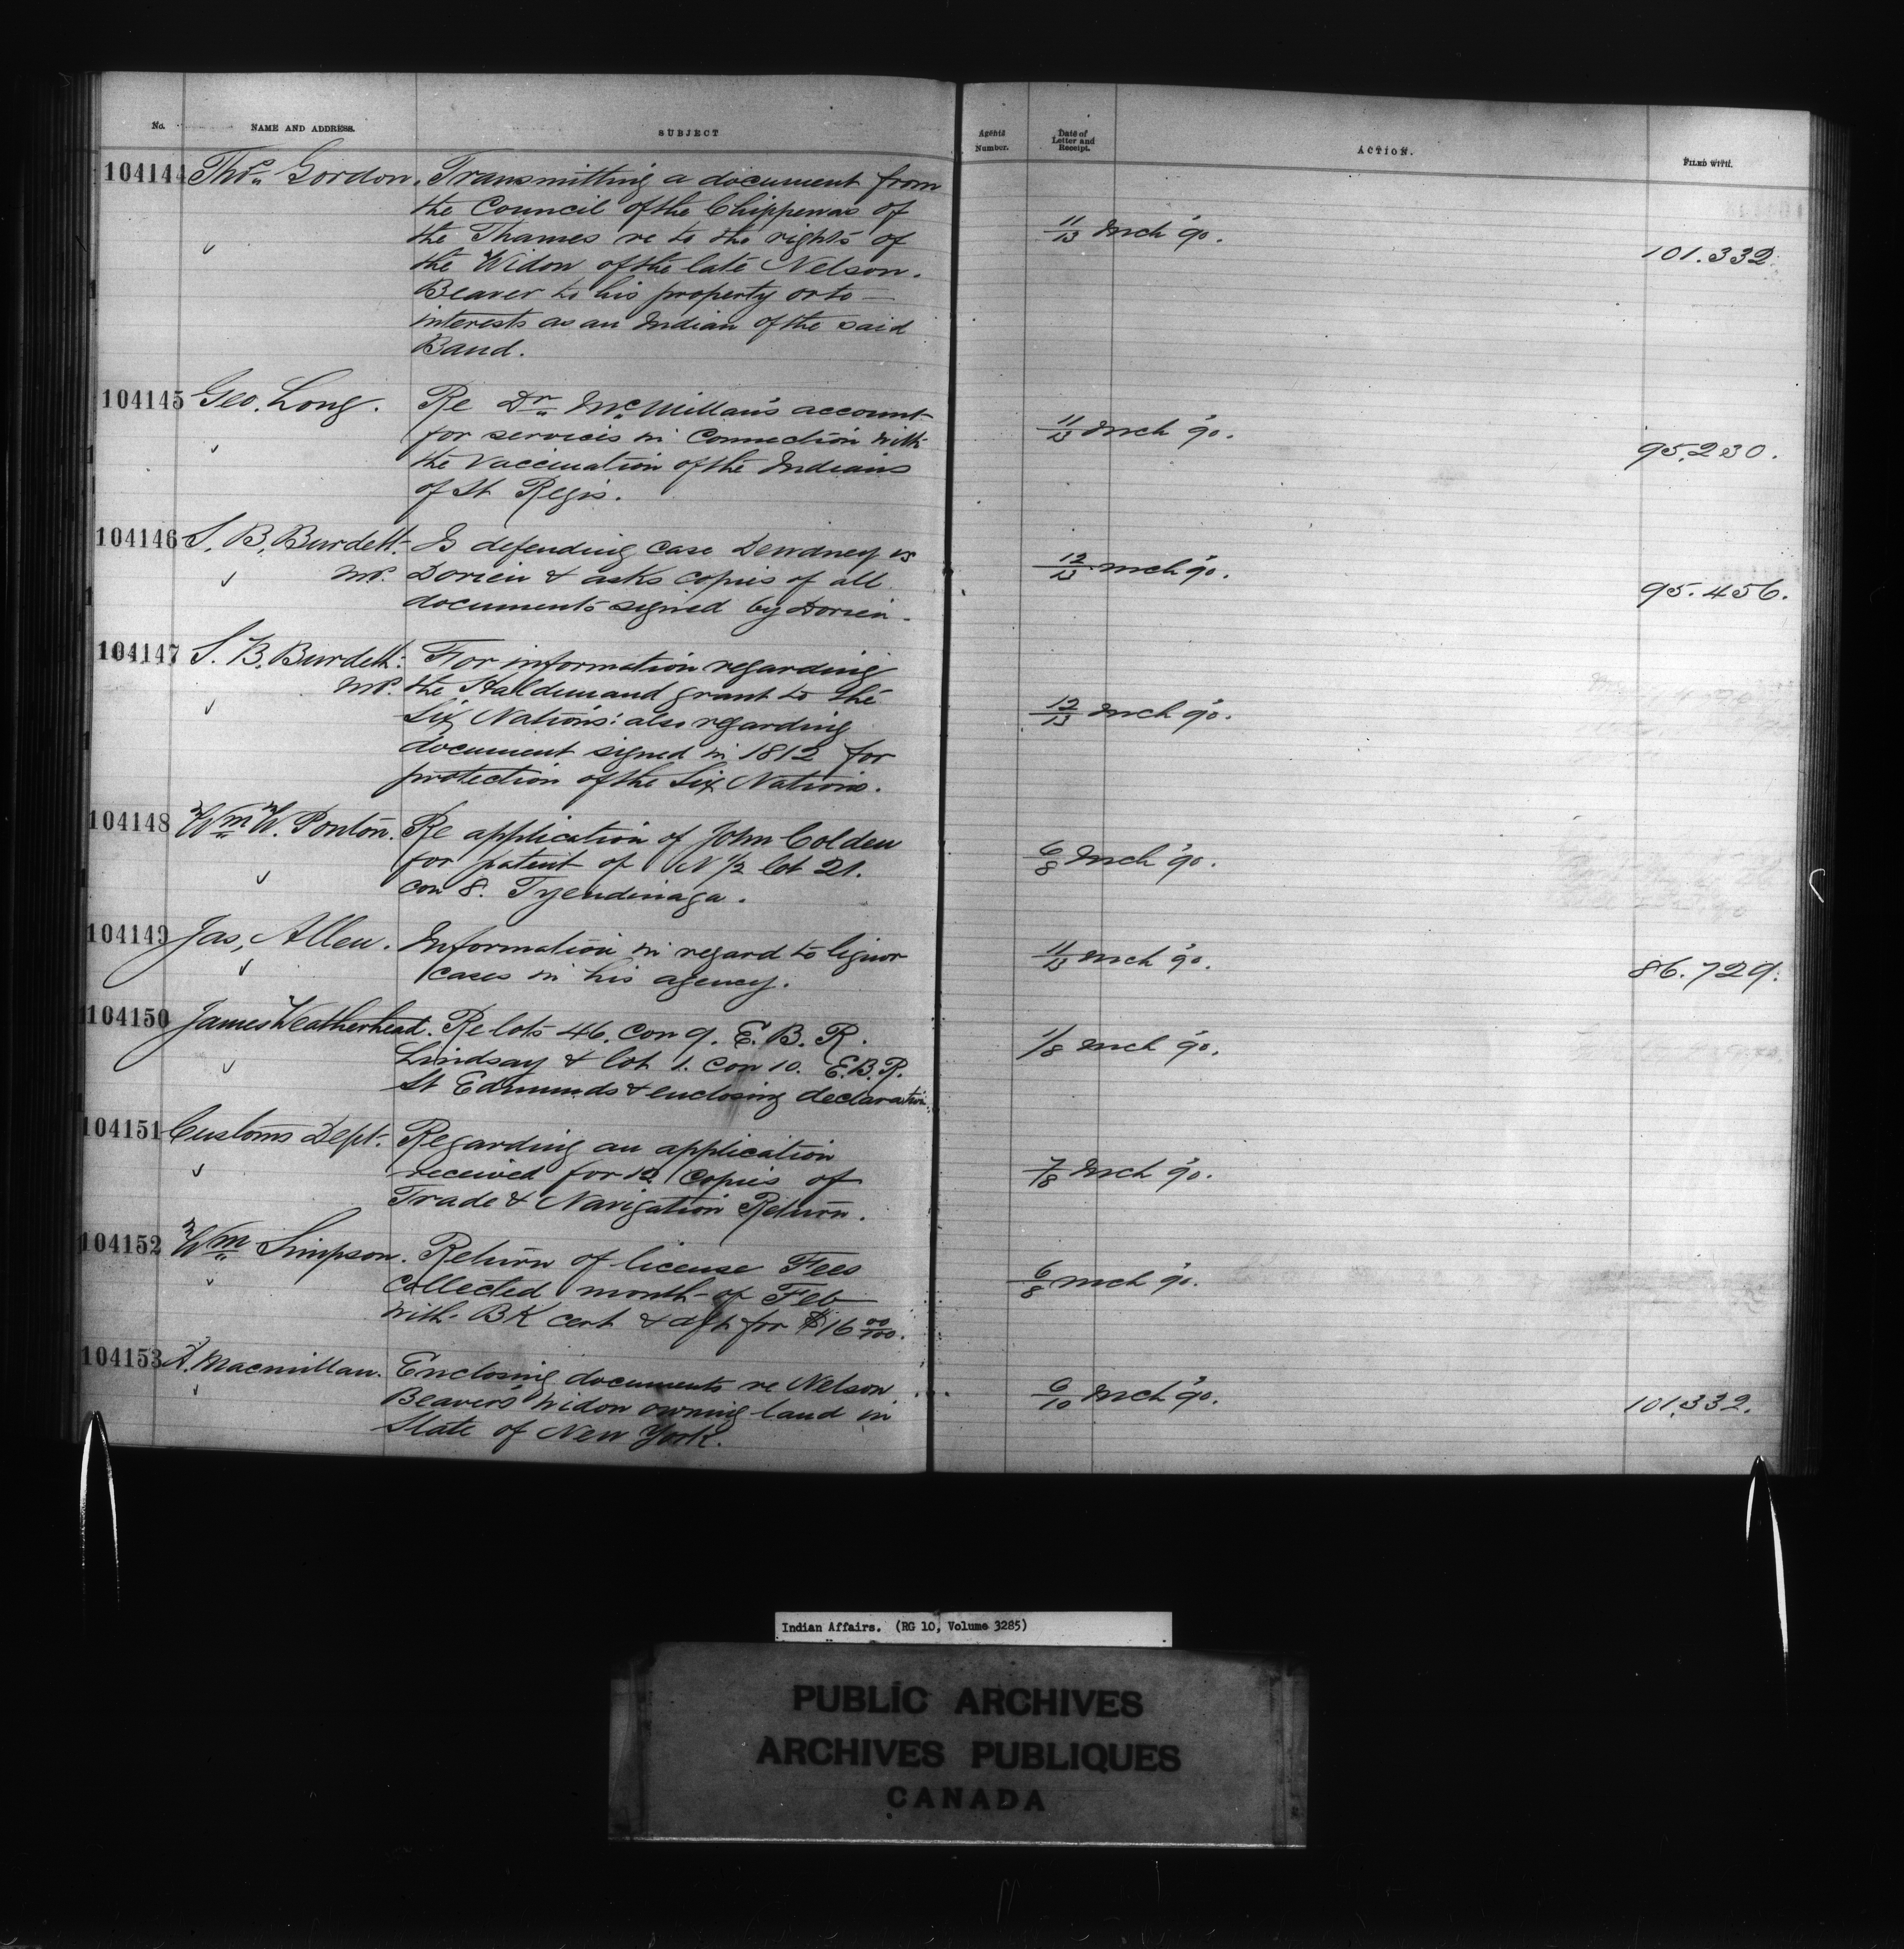 No. NAME AND ADDRESS. SUBJECT Agents Number. Date of Letter and Receipt. ACTION. FILED WITH.
104144 Thos. Gordon. Transmitting a document from
the Council of the Chippewas of
the Thames re to the rights of
the Widow of the late Nelson.
Beaver to his property or to
interests as an Indian of the said
Band.
11/13 Mch '90. 101.332.
104145 Geo. Long. Re Dr. McMillan's account
for services in connection with
the vaccination of the Indians
of St Regis.
11/13 Mch '90. 95.230.
104146 S. B. Burdett. Is defending case Dewdney vs
MP. Dorien & asks copies of all
documents signed by Dorien.
12/13 Mch '90. 95.456.
104147 S. B. Burdett. For information regarding
MP. the Haldimand grant to the
Six Nations: also regarding
document signed in 1812 for
protection of the Six Nations.
12/13 Mch '90.
104148 Wm. W. Ponton. Re application of John Colden
for patent of N 1/2 lot 21.
con 8. Tyendinaga.
6/8 Mch '90.
104149 Jas. Allen. Information in regard to liquor
cases in his agency.
11/13 Mch '90. 86.729.
104150 James Weatherhead. Re lots 46. con 9. E. B. R.
Lindsay & lot 1. con 10. E.B.R.
St Edmunds & enclosing declaration.
1/8 Mch '90.
104151 Customs Dept. Regarding an application
received for 12 copies of
Trade & Navigation Return.
7/8 Mch '90.
104152 Wm. Simpson. Return of license Fees
collected month of Feb
with BK cert & dft for $16 00/100.
6/8 Mch '90.
104153 A. Macmillan. Enclosing documents re Nelson
Beavers widow owning land in
State of New York.
6/10 Mch '90. 101.332.
Indian Affairs. (RG 10, Volume 3285)
PUBLIC ARCHIVES
ARCHIVES PUBLIQUES
CANADA